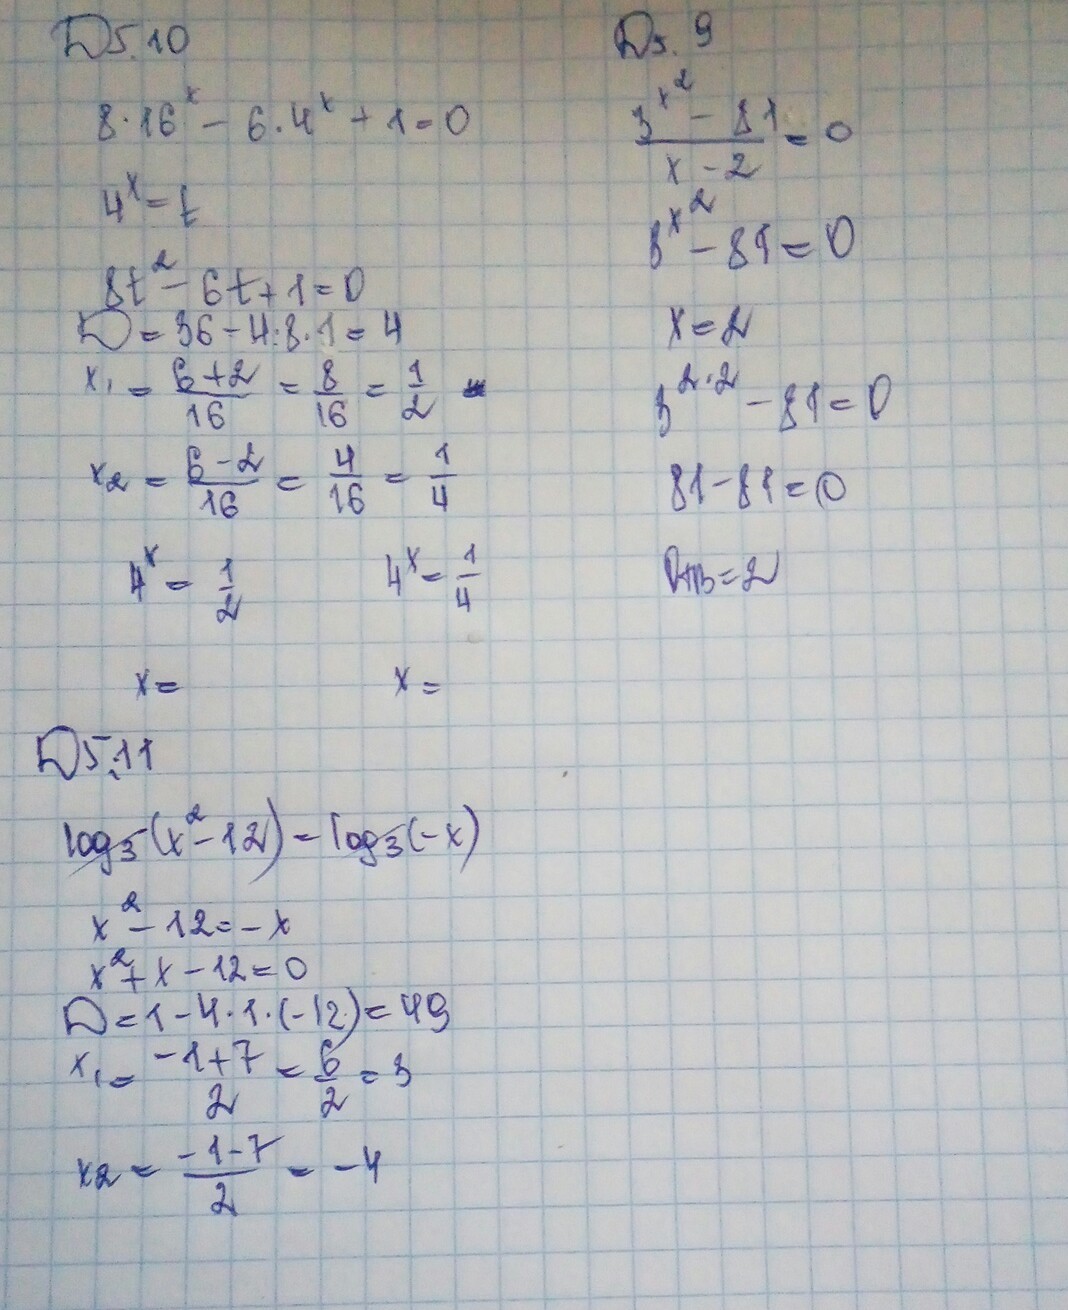 D5.10
8·16^x - 6·4^x + 1 = 0
4^x = t
8t^2 - 6t + 1 = 0
D = 36 - 4·8·1 = 4
x1 = (6+2)/16 = 8/16 = 1/2
x2 = (6-2)/16 = 4/16 = 1/4
4^x = 1/2 4^x = 1/4
x = x =
D5.11
log3(x^2 - 12) = log3(-x)
x^2 - 12 = -x
x^2 + x - 12 = 0
D = 1 - 4·1·(-12) = 49
x1 = (-1+7)/2 = 6/2 = 3
x2 = (-1-7)/2 = -4
D5.9
(3^x^2 - 81)/(x - 2) = 0
3^x^2 - 81 = 0
x = 2
3^2·2 - 81 = 0
81 - 81 = 0
Отв = 2